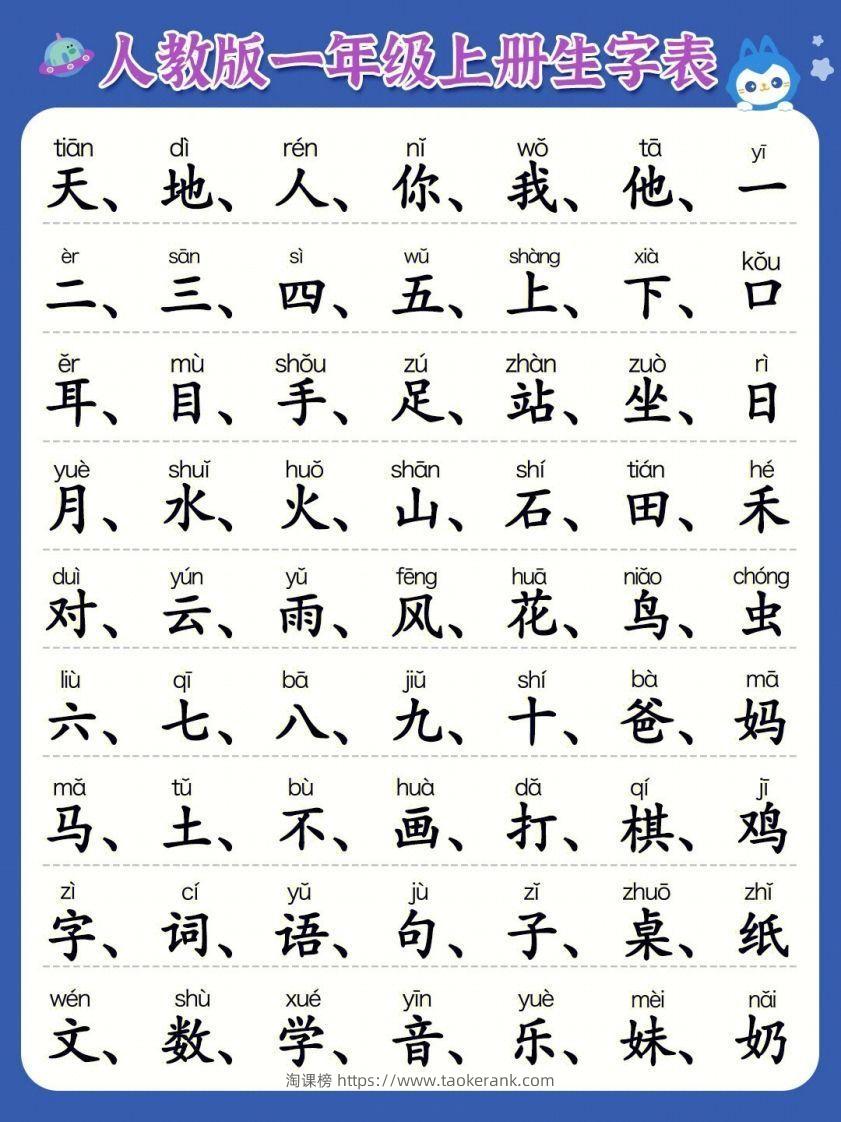 人教版一年级上册生字表
tiān dì rén nǐ wǒ tā yī
天、地、人、你、我、他、一
èr sān sì wǔ shàng xià kǒu
二、三、四、五、上、下、口
ěr mù shǒu zú zhàn zuò rì
耳、目、手、足、站、坐、日
yuè shuǐ huǒ shān shí tián hé
月、水、火、山、石、田、禾
duì yún yǔ fēng huā niǎo chóng
对、云、雨、风、花、鸟、虫
liù qī bā jiǔ shí bà mā
六、七、八、九、十、爸、妈
mǎ tǔ bù huà dǎ qí jī
马、土、不、画、打、棋、鸡
zì cí yǔ jù zǐ zhuō zhǐ
字、词、语、句、子、桌、纸
wén shù xué yīn yuè mèi nǎi
文、数、学、音、乐、妹、奶
淘课榜 https://www.taokerank.com